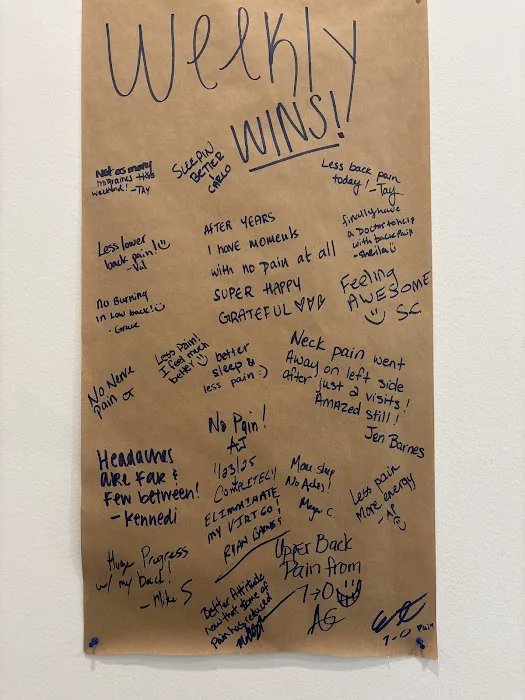 Weekly
WINS!!
Not as many
migraines this
weekend! -Tay
SLEEPIN
BETTER
CARLO
Less back pain
today! -Tay
Less lower
back pain!
-Val
AFTER YEARS
I have moments
with no pain at all
SUPER HAPPY
GRATEFUL ♡♡♡
finally have
a Doctor to help
with back pain
-Sheila
Feeling
AWESOME
SC
No Burning
in Low back!
-Grace
No Nerve
pain
Less Pain!
I feel much
better
better
sleep &
less pain :)
Neck pain went
Away on left side
after just 2 visits!
Amazed still!
Jen Barnes
No Pain!
AJ
Headaches
are far &
few between!
-Kennedi
1/23/25
COMPLETELY
ELIMINATE
MY VIRTGO!
RYAN
More sleep
No Aches!
C.
Less pain
More energy
-AP
Huge Progress
w/ my back!
-Mike S
Better Attitude
now that some of
pain has reduced
Upper Back
Pain from
7→0
AG
7-0 Pain